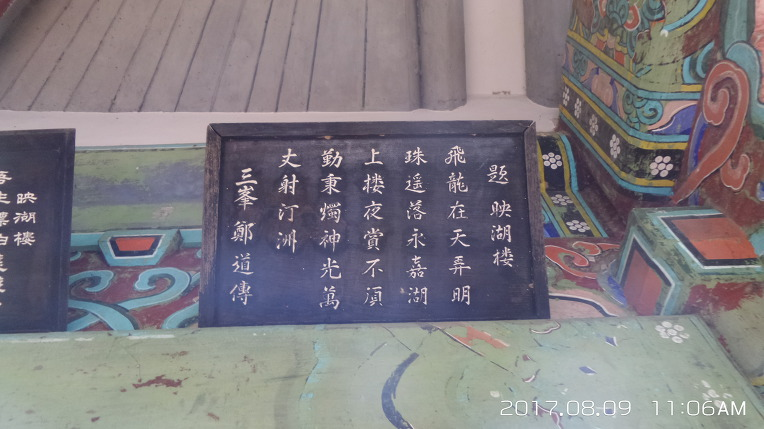 題 映湖楼
飛龍在天弄明
珠遥落永嘉湖
上楼夜賞不須
勤秉燭神光萬
丈射汀洲
三峯鄭道傳
映湖楼
2017.08.09 11:06AM